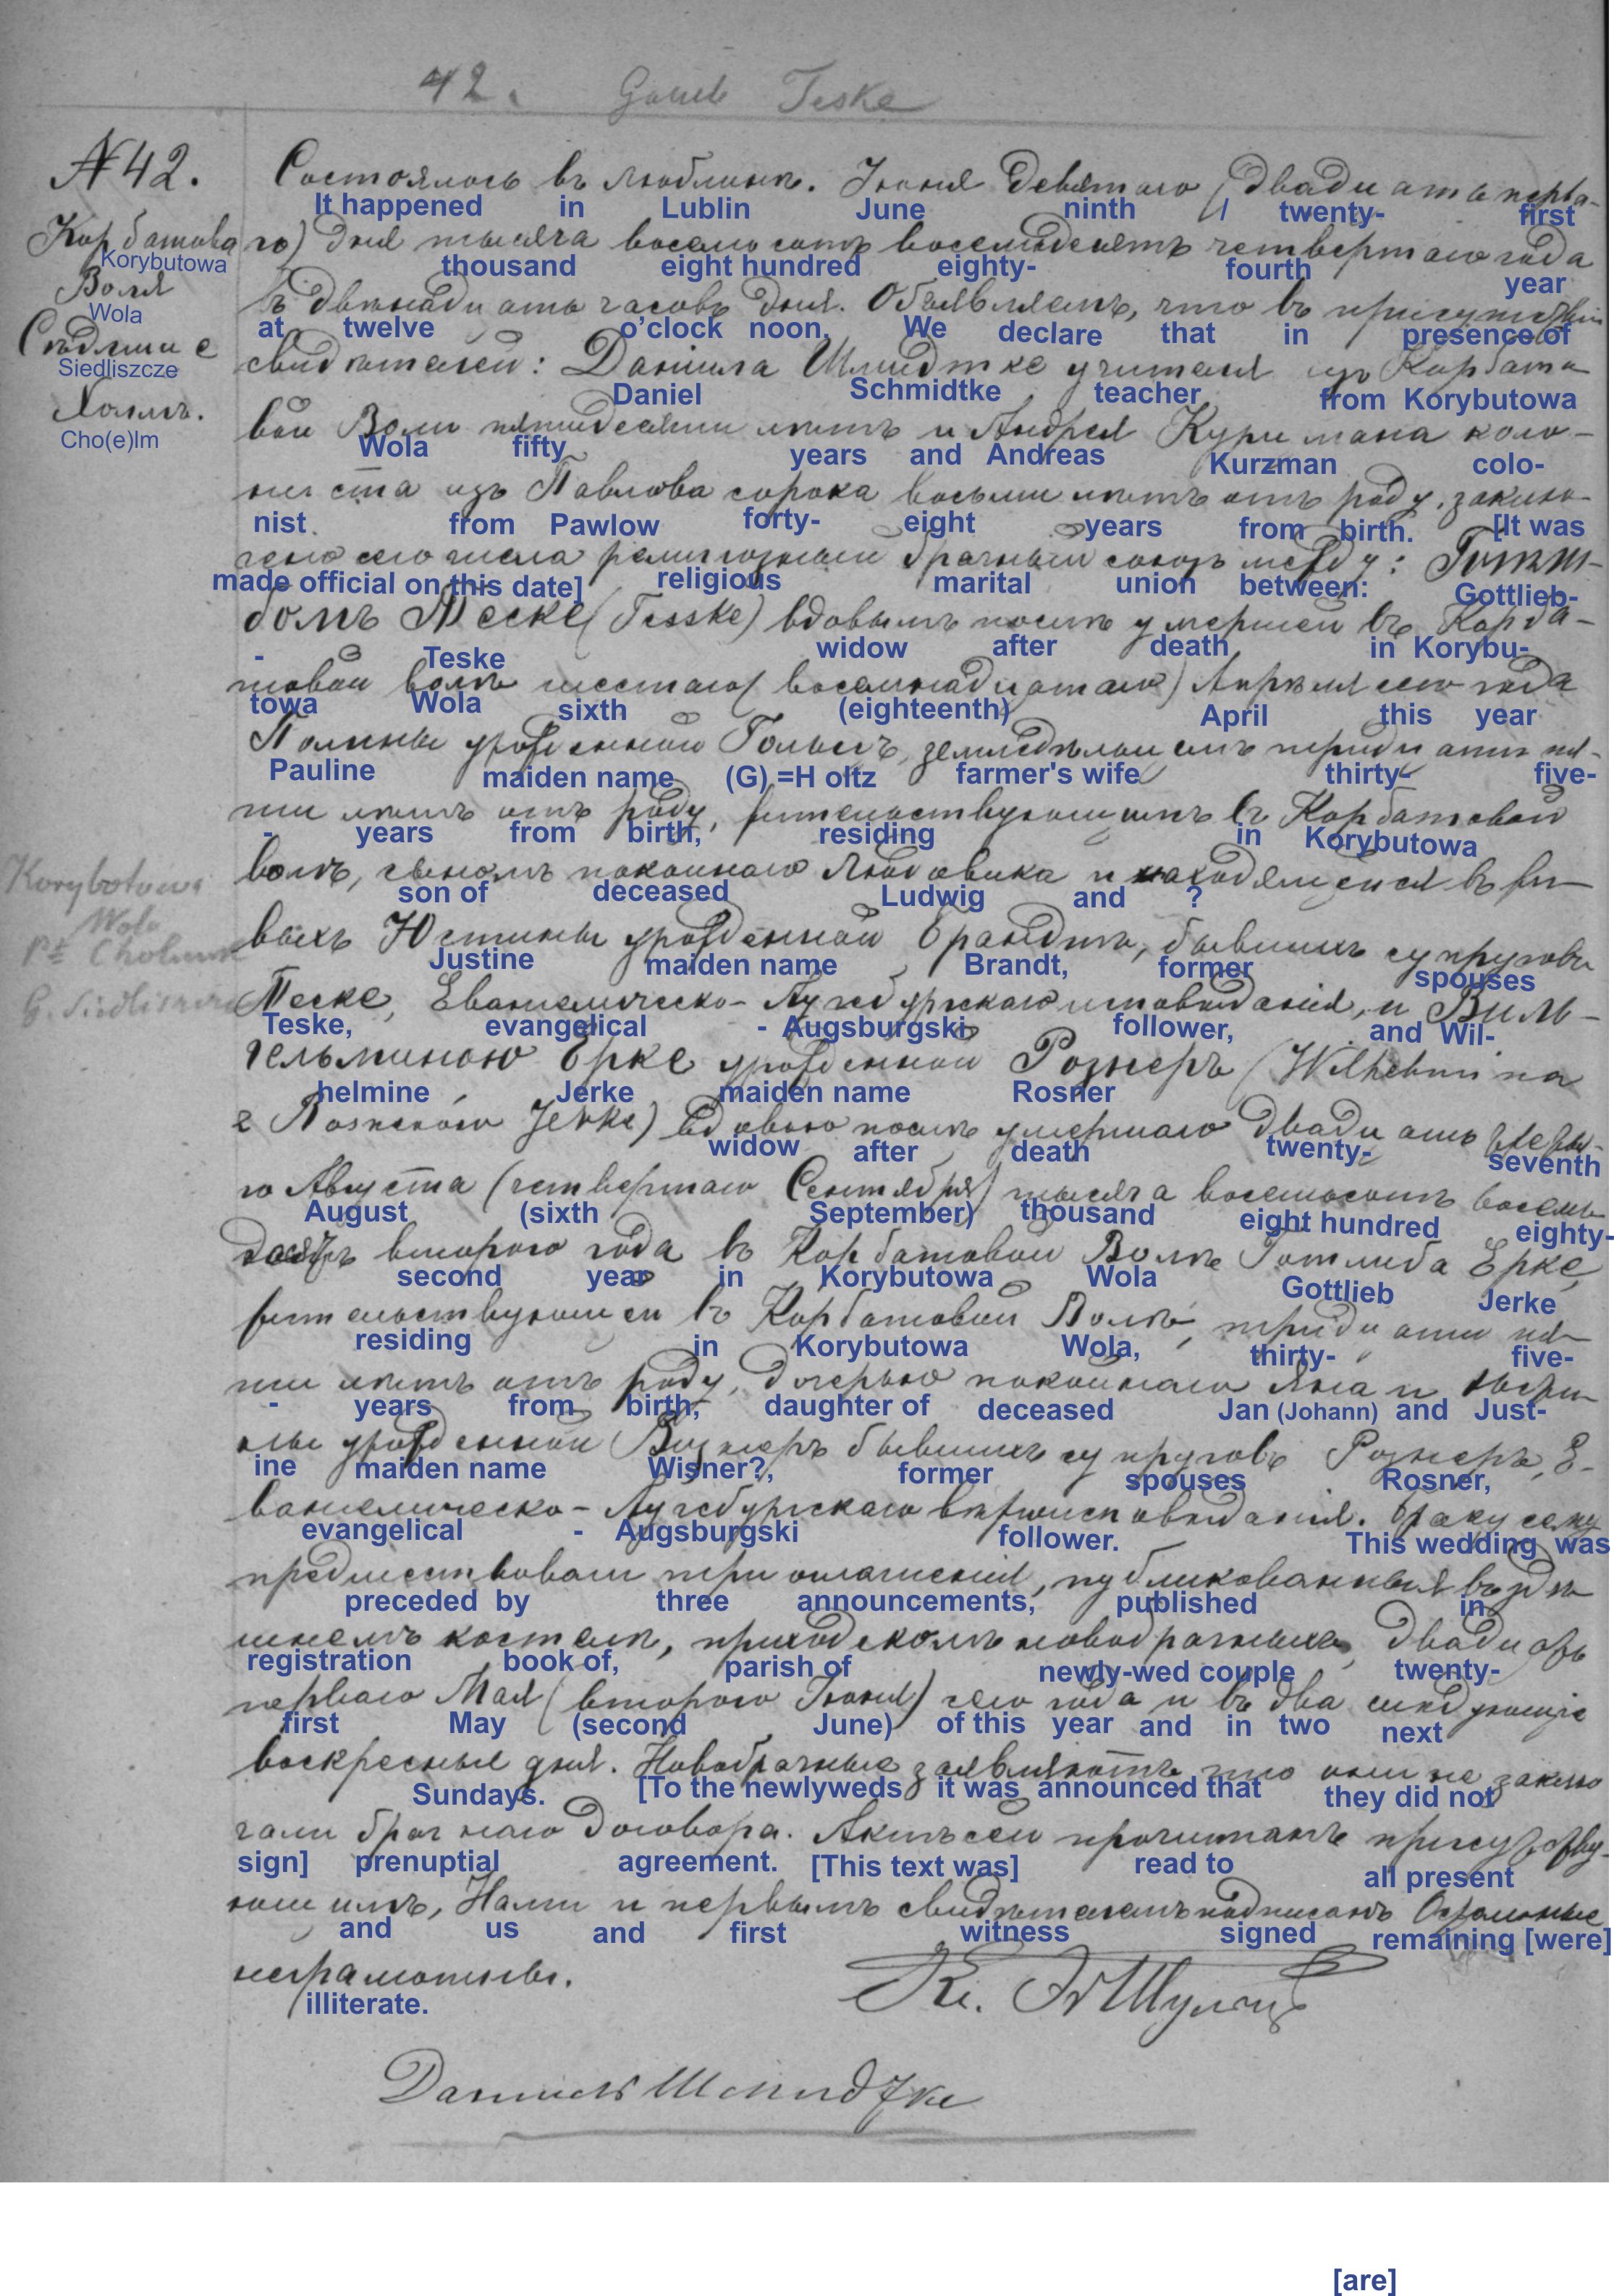 42. Teske
№ 42.
Состоялось въ Люблинѣ. Іюня девятаго (двадцать перва-
It happened in Lublin June ninth / twenty- first
го) дня тысяча восемьсотъ восемьдесятъ четвертаго года
Korybutowa thousand eight hundred eighty- fourth year
Воля
въ двѣнадцать часовъ дня. Объявляемъ, что въ присутствіи
Wola at twelve o'clock noon, We declare that in presence of
свидѣтелей: Даніила Шмидтке учителя изъ Корбато
Siedliszcze Daniel Schmidtke teacher from Korybutowa
Холмъ.
вой Воли пятидесяти лѣтъ и Андрея Курцмана коло-
Cho(e)lm Wola fifty years and Andreas Kurzman colo-
ниста изъ Павлова сорока восьми лѣтъ отъ роду, заклю-
nist from Pawlow forty- eight years from birth. [It was
чено сего числа религіозный брачный союзъ между: Готли-
made official on this date] religious marital union between: Gottlieb-
бомъ Теске (Tesske) вдовымъ послѣ умершей въ Корба-
- Teske widow after death in Korybu-
товой Волѣ шестаго (восемнадцатаго) Апрѣля сего года
towa Wola sixth (eighteenth) April this year
Полины урожденной Гольцъ, земледѣльцемъ тридцати пя-
Pauline maiden name (G) =H oltz farmer's wife thirty- five-
ти лѣтъ отъ роду, жительствующимъ въ Корбатовой
- years from birth, residing in Korybutowa
Волѣ, сыномъ покойнаго Людовика и находящейся въ жи-
son of deceased Ludwig and ?
Korybotowa
Wola
выхъ Юстины урожденной Брандтъ, бывшихъ супруговъ
Justine maiden name Brandt, former spouses
Теске, Евангелическо-Аугсбургскаго исповѣданія, и Виль-
Teske, evangelical - Augsburgski follower, and Wil-
гельминою Ерке урожденной Рознеръ (Wilhelmina
helmine Jerke maiden name Rosner
z Roznerów Jerke) вдовою послѣ умершаго двадцать
widow after death twenty- seventh
го Августа (четвертаго Сентября) тысяча восемьсотъ восемь
August (sixth September) thousand eight hundred eighty-
десятъ втораго года въ Корбатовой Волѣ Готлиба Ерке,
second year in Korybutowa Wola Gottlieb Jerke
жительствующей въ Корбатовой Волѣ, тридцати пя-
residing in Korybutowa Wola, thirty- five-
ти лѣтъ отъ роду, дочерью покойнаго Яна и Юсти-
- years from birth, daughter of deceased Jan (Johann) and Just-
ны урожденной Визнеръ бывшихъ супруговъ Рознеръ, Е-
ine maiden name Wisner?, former spouses Rosner,
вангелическо-Аугсбургскаго вѣроисповѣданія. Браку сему
evangelical - Augsburgski follower. This wedding was
предшествовали три оглашенія, публикованныя въ здѣ-
preceded by three announcements, published in
шнемъ костелѣ, приходскомъ новобрачныхъ, двадцать
registration book of, parish of newly-wed couple twenty-
перваго Мая (втораго Іюня) сего года и въ два слѣдующіе
first May (second June) of this year and in two next
воскресныя дня. Новобрачные заявляютъ что они не заклю
Sundays. [To the newlyweds it was announced that they did not
чали брачнаго договора. Актъ сей прочитанъ присутству-
sign] prenuptial agreement. [This text was] read to all present
ющимъ, Нами и первымъ свидѣтелемъ подписанъ Остальные
and us and first witness signed remaining [were]
неграмотны.
illiterate.
Даніилъ Шмидтке
[are]